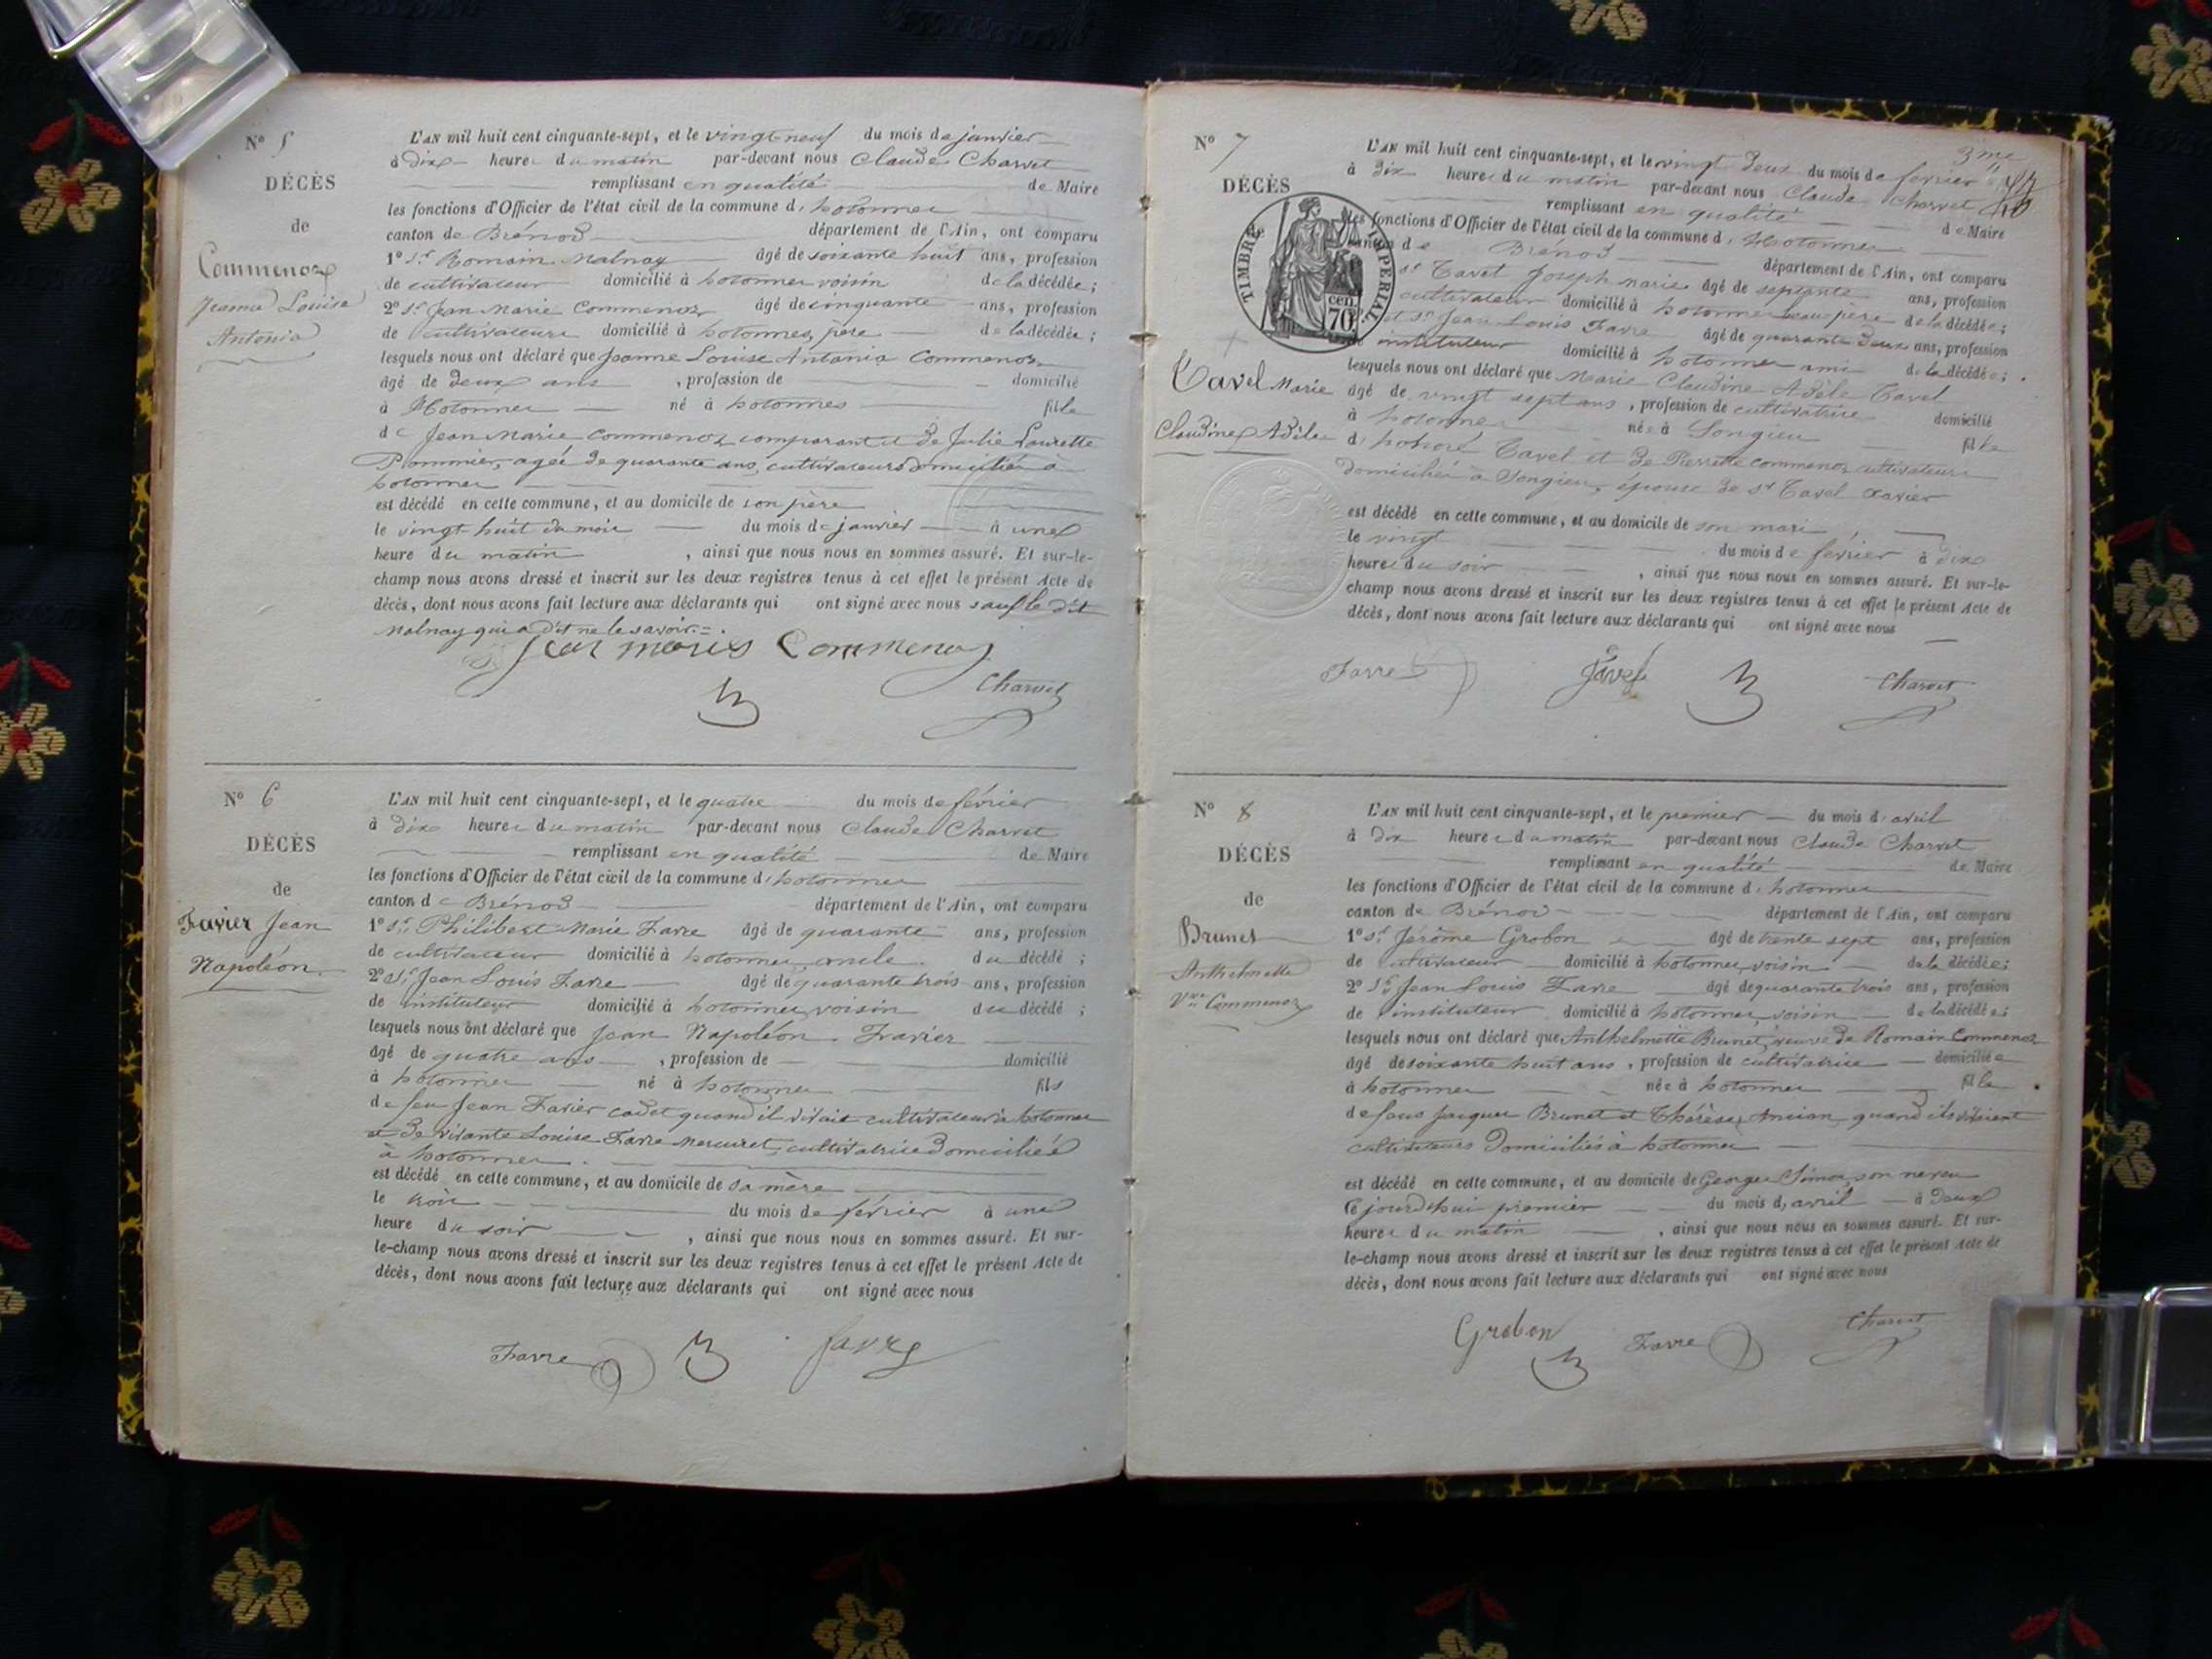 N° 5
DÉCÈS
de
Commenoz
Jeanne Louise
Antonia
L'AN mil huit cent cinquante-sept, et le vingt neuf du mois de janvier
à dix heures du matin par-devant nous Claude Charvet
remplissant en qualité de Maire
les fonctions d'Officier de l'état civil de la commune d'hotonnes
canton de Brénod département de l'Ain, ont comparu
1° Sr Romain Malnay âgé de soixante huit ans, profession
de cultivateur domicilié à hotonnes voisin de la décédée;
2° Sr Jean Marie Commenoz âgé de cinquante ans, profession
de cultivateur domicilié à hotonnes, père de la décédée;
lesquels nous ont déclaré que Jeanne Louise Antonia Commenoz
âgé de deux ans, profession de domicilié
à Hotonnes né à hotonnes fille
de Jean Marie Commenoz comparant et de Julie Laurette
Pommier, agée de quarante ans, cultivateurs domiciliés à
hotonnes
est décédé en cette commune, et au domicile de son père
le vingt-huit du mois du mois de janvier à une
heure du matin, ainsi que nous nous en sommes assuré. Et sur-le-
champ nous avons dressé et inscrit sur les deux registres tenus à cet effet le présent Acte de
décès, dont nous avons fait lecture aux déclarants qui ont signé avec nous sauf le dit
Malnay qui a dit ne le savoir.
Jean maris Commenoz
Charvet
N° 6
DÉCÈS
de
Favier Jean
Napoléon.
L'AN mil huit cent cinquante-sept, et le quatre du mois de février
à dix heures du matin par-devant nous Claude Charvet
remplissant en qualité de Maire
les fonctions d'Officier de l'état civil de la commune d'hotonnes
canton de Brénod département de l'Ain, ont comparu
1° Sr Philibert Marie Favre âgé de quarante ans, profession
de cultivateur domicilié à hotonnes, oncle du décédé;
2° Sr Jean Louis Favre âgé de quarante trois ans, profession
de instituteur domicilié à hotonnes, voisin du décédé;
lesquels nous ont déclaré que Jean Napoléon Favier
âgé de quatre ans, profession de domicilié
à hotonnes né à hotonnes fils
de feu Jean Favier cadet quand il vivait cultivateur à hotonnes
et de vivante Louise Favre Mercuret, cultivatrice domiciliée
à hotonnes.
est décédé en cette commune, et au domicile de sa mère
le trois du mois de février à une
heure du soir, ainsi que nous nous en sommes assuré. Et sur-
le-champ nous avons dressé et inscrit sur les deux registres tenus à cet effet le présent Acte de
décès, dont nous avons fait lecture aux déclarants qui ont signé avec nous
Favre favre
N° 7
DÉCÈS
TIMBRE IMPÉRIAL
70 cen.
Tavel Marie
Claudine Adèle
3me
L'AN mil huit cent cinquante-sept, et le vingt deux du mois de février
à dix heures du matin par-devant nous Claude Charvet
remplissant en qualité de Maire
les fonctions d'Officier de l'état civil de la commune d'hotonnes
canton de Brénod département de l'Ain, ont comparu
Sr Tavel Joseph Marie âgé de septante ans, profession
cultivateur domicilié à hotonnes beau père de la décédée;
et Sr Jean Louis Favre âgé de quarante deux ans, profession
instituteur domicilié à hotonnes ami de la décédée;
lesquels nous ont déclaré que Marie Claudine Adèle Tavel
âgé de vingt sept ans, profession de cultivatrice domicilié
à hotonnes née à Songieu fille
d'honoré Tavel et de Pierrette Commenoz cultivateurs
domiciliés à Songieu, épouse de Sr Tavel Xavier
est décédé en cette commune, et au domicile de son mari
le vingt du mois de février à dix
heures du soir, ainsi que nous nous en sommes assuré. Et sur-le-
champ nous avons dressé et inscrit sur les deux registres tenus à cet effet le présent Acte de
décès, dont nous avons fait lecture aux déclarants qui ont signé avec nous
Favre Charvet
N° 8
DÉCÈS
de
Brunet
Anthelmette
Vve Commenoz
L'AN mil huit cent cinquante-sept, et le premier du mois d'avril
à dix heures du matin par-devant nous Claude Charvet
remplissant en qualité de Maire
les fonctions d'Officier de l'état civil de la commune d'hotonnes
canton de Brénod département de l'Ain, ont comparu
1° Sr Jérôme Grobon âgé de trente sept ans, profession
de cultivateur domicilié à hotonnes, voisin de la décédée;
2° Sr Jean Louis Favre âgé de quarante trois ans, profession
de instituteur domicilié à hotonnes, voisin de la décédée;
lesquels nous ont déclaré que Anthelmette Brunet, veuve de Romain Commenoz
âgé de soixante huit ans, profession de cultivatrice domiciliée
à hotonnes née à hotonnes fille
de feus Jacques Brunet et Thérèse Ancian, quand ils vivaient
cultivateurs domiciliés à hotonnes
est décédé en cette commune, et au domicile de Georges Simon son neveu
Ce jourd'hui premier du mois d'avril à deux
heures du matin, ainsi que nous nous en sommes assuré. Et sur-
le-champ nous avons dressé et inscrit sur les deux registres tenus à cet effet le présent Acte de
décès, dont nous avons fait lecture aux déclarants qui ont signé avec nous
Grobon Favre Charvet